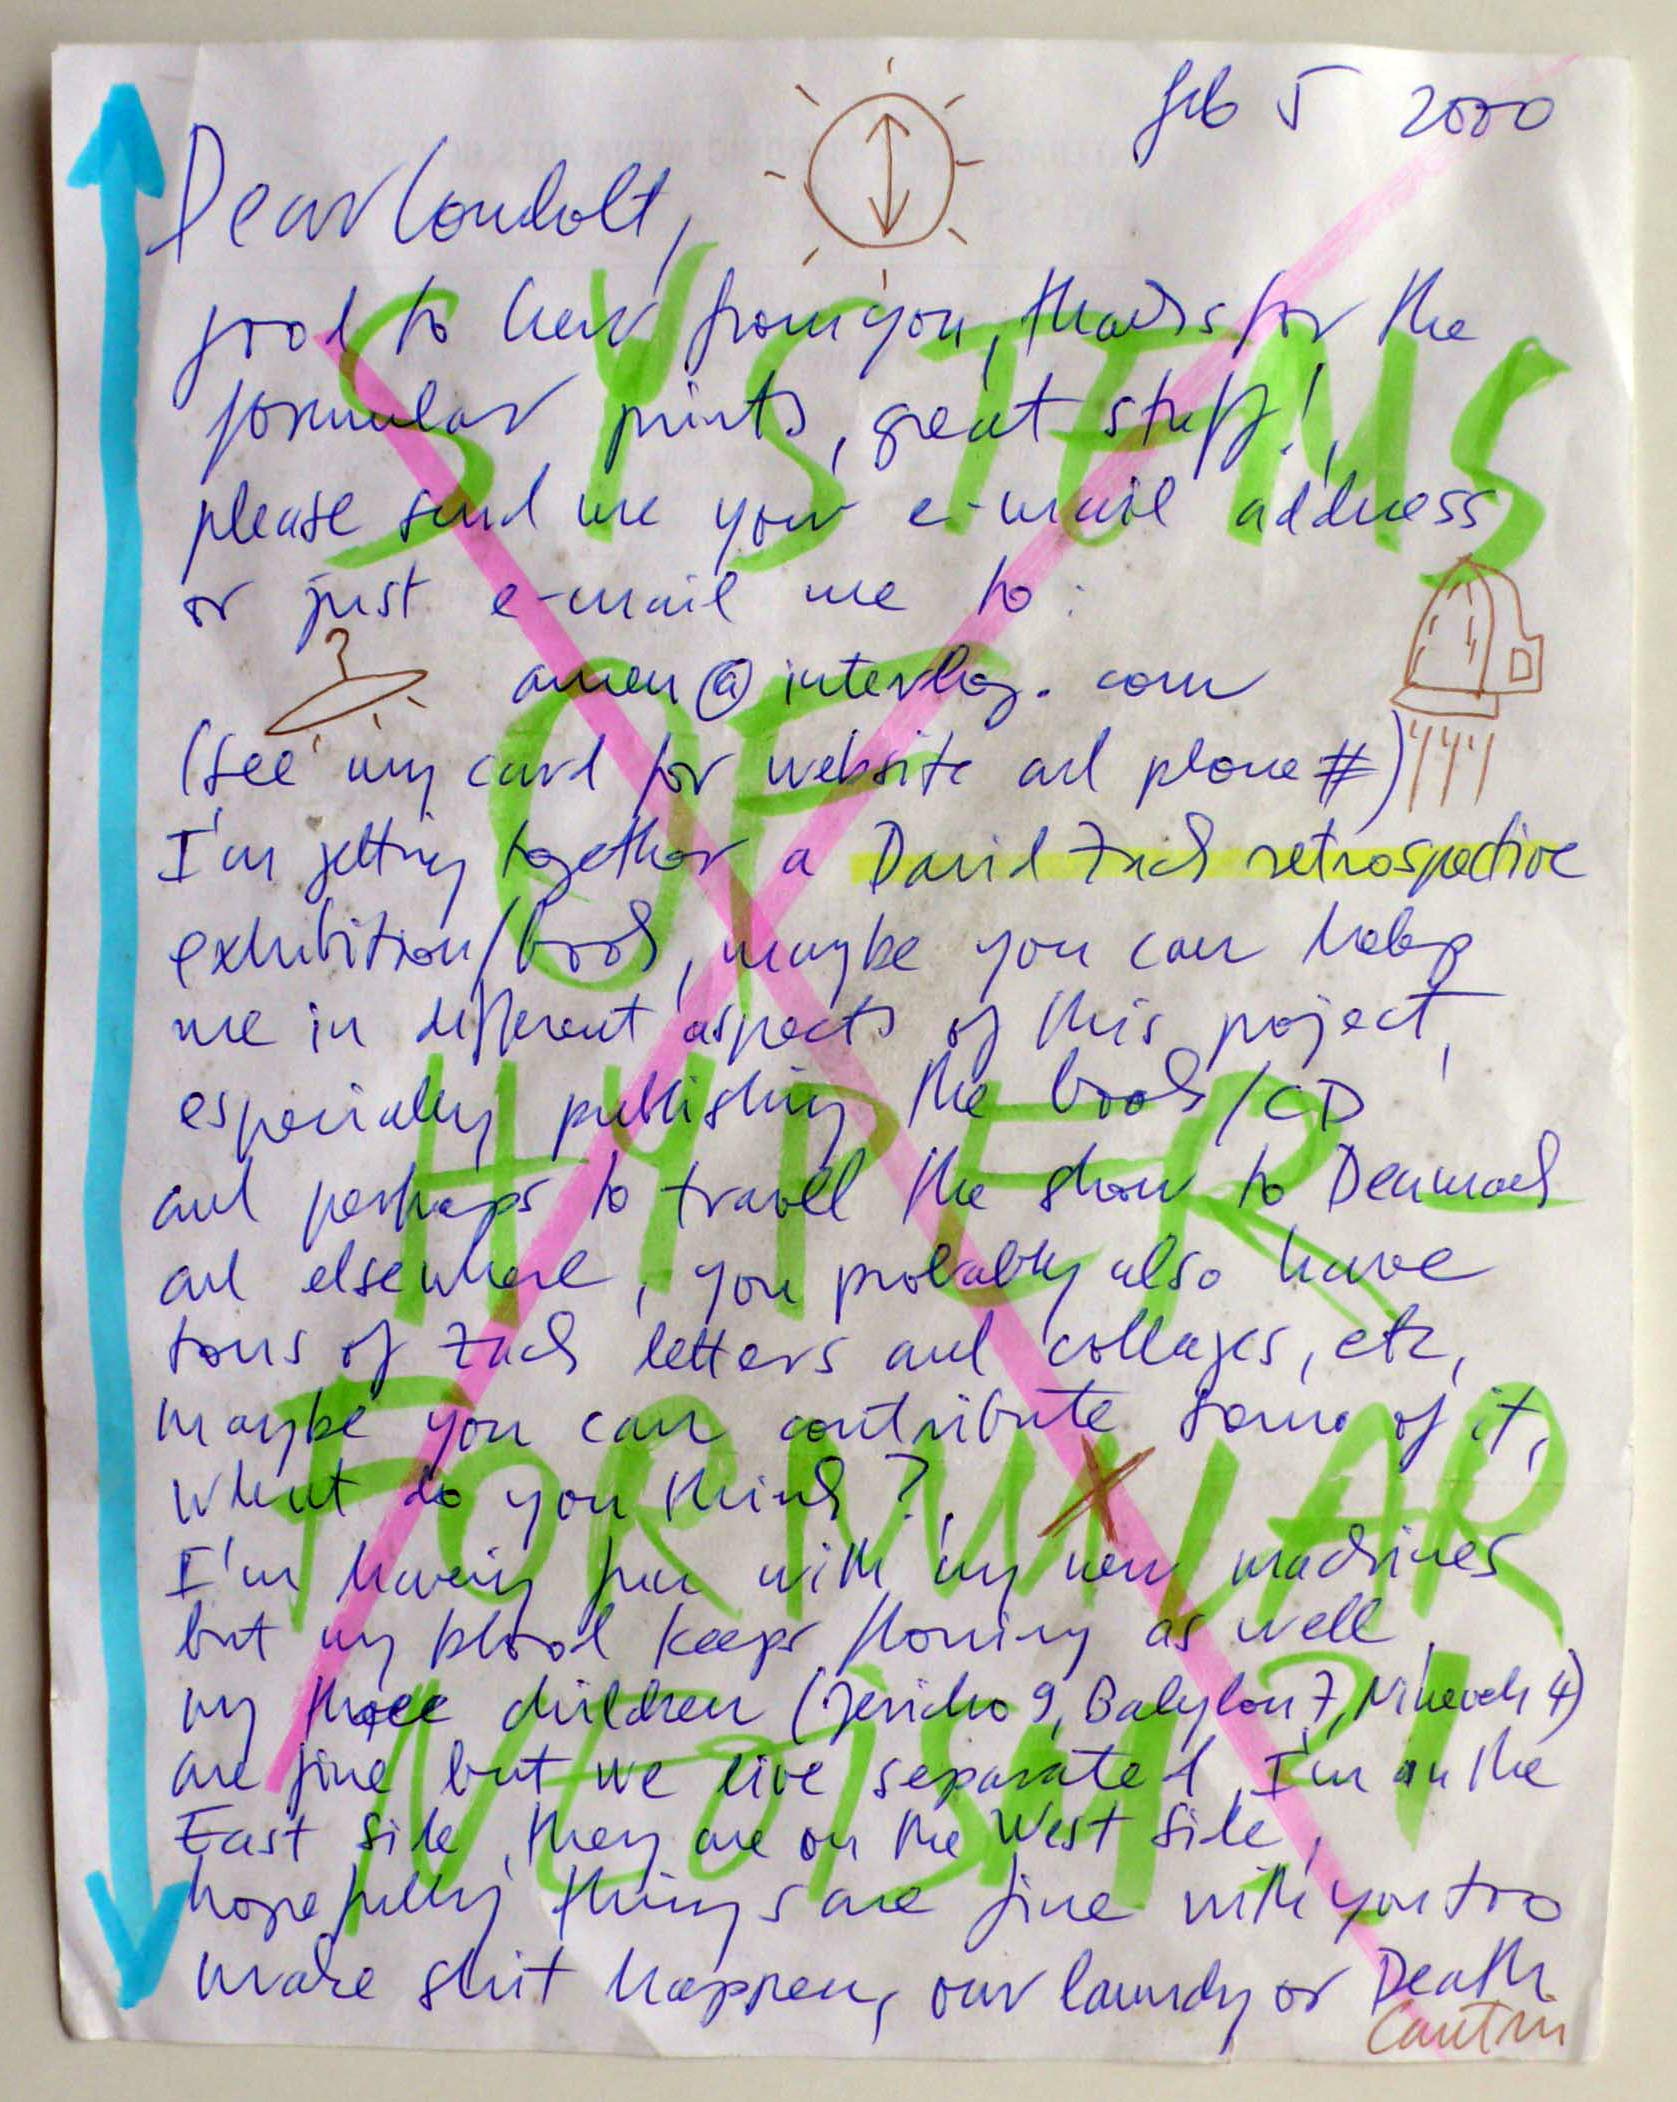 Feb 5 2000
Dear Loudolt,
good to hear from you, thanks for the
formular prints, great stuff!
please send me your e-mail address
or just e-mail me to:
amen@interlog.com
(see my card for website and phone #)
I'm getting together a David Zack retrospective
exhibition/book, maybe you can help
me in different aspects of this project,
especially publishing the book/CD
and perhaps to travell the show to Denmark
and elsewhere, you probably also have
tons of Zack letters and collages, etc,
maybe you can contribute some of it,
what do you think?
I'm having fun with my new machines
but my blood keeps flowing as well,
my three children (Jericho 9, Babylon 7, Nineveh 4)
are fine but we live separated, I'm on the
East Side, they are on the West Side,
hopefully things are fine with you too
make shit happen, our laundry or Death
SYSTEMS
OF
HYPER-
FORMULAR
NEOISM?!